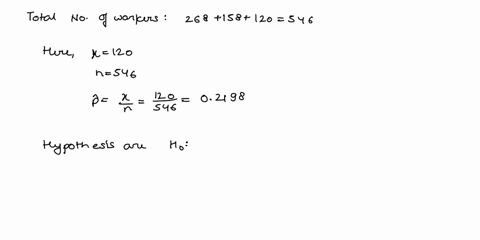 Total No. of workers: 268+158+120=546
Here, x=120
n=546
p̂= x/n = 120/546 = 0.2198
Hypothesis are H₀: